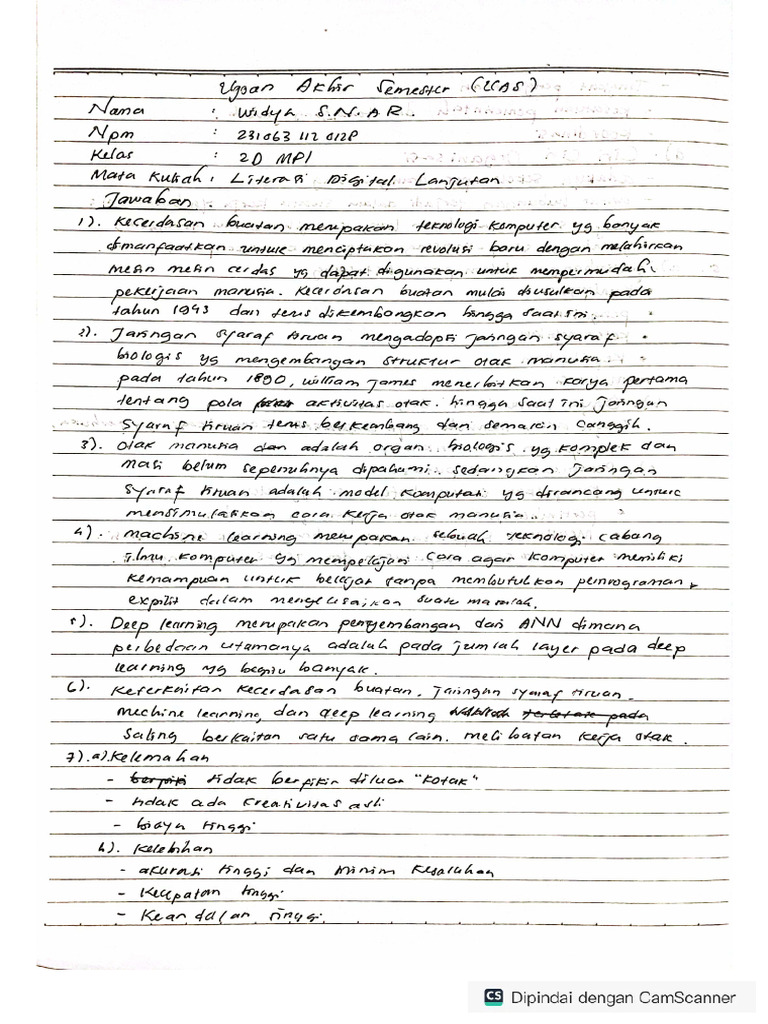 Ujian Akhir Semester (UAS)
Nama : Widya S.N.A.R.
Npm : 231063 112 0128
Kelas : 2D MPI
Mata Kuliah : Literasi Digital Lanjutan
Jawaban
1). Kecerdasan buatan merupakan teknologi komputer yg banyak
dimanfaatkan untuk menciptakan revolusi baru dengan melahirkan
mesin mesin cerdas yg dapat digunakan untuk mempermudah
pekerjaan manusia. Kecerdasan buatan mulai diusulkan pada
tahun 1943 dan terus dikembangkan hingga saat ini.
2). Jaringan Syaraf tiruan mengadopsi jaringan syaraf
biologis yg mengembangan struktur otak manusia
pada tahun 1890, William James menerbitkan karya pertama
tentang pola aktivitas otak. hingga saat ini Jaringan
Syaraf tiruan terus berkembang dan semakin canggih.
3). Otak manusia dan adalah organ biologis yg komplek dan
masi belum sepenuhnya dipahami. sedangkan Jaringan
Syaraf tiruan adalah model komputasi yg dirancang untuk
mensimulasikan cara kerja otak manusia.
4). machine learning merupakan sebuah teknologi cabang
ilmu komputer yg mempelajari cara agar komputer memiliki
kemampuan untuk belajar tanpa membutuhkan pemrograman
expilit dalam mengelusaikan suatu masalah.
5). Deep learning merupakan pengembangan dari ANN dimana
perbedaan utamanya adalah pada jumlah layer pada deep
learning yg begitu banyak.
6). Keterkaitan kecerdasan buatan, Jaringan syaraf tiruan.
mechine learning, dan deep learning terletak pada
saling berkaitan satu sama lain. melibatan kerja otak.
7). a). Kelemahan
- berpiki tidak berpikir diluar "kotak"
- tidak ada kreativitas asli
- biaya tinggi
b). Kelebihan
- akurasi tinggi dan minim kesalahan
- Kecepatan tinggi
- Keandalan tinggi
CS Dipindai dengan CamScanner